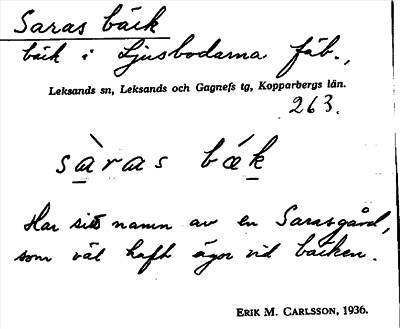 Saras bäck
bäck i Ljusbodarna fäb.,
Leksands sn, Leksands och Gagnefs tg, Kopparbergs län.
263.
sàras bǽk
Har sitt namn av en Sarasgård,
som väl haft ägor vid bäcken.
ERIK M. CARLSSON, 1936.